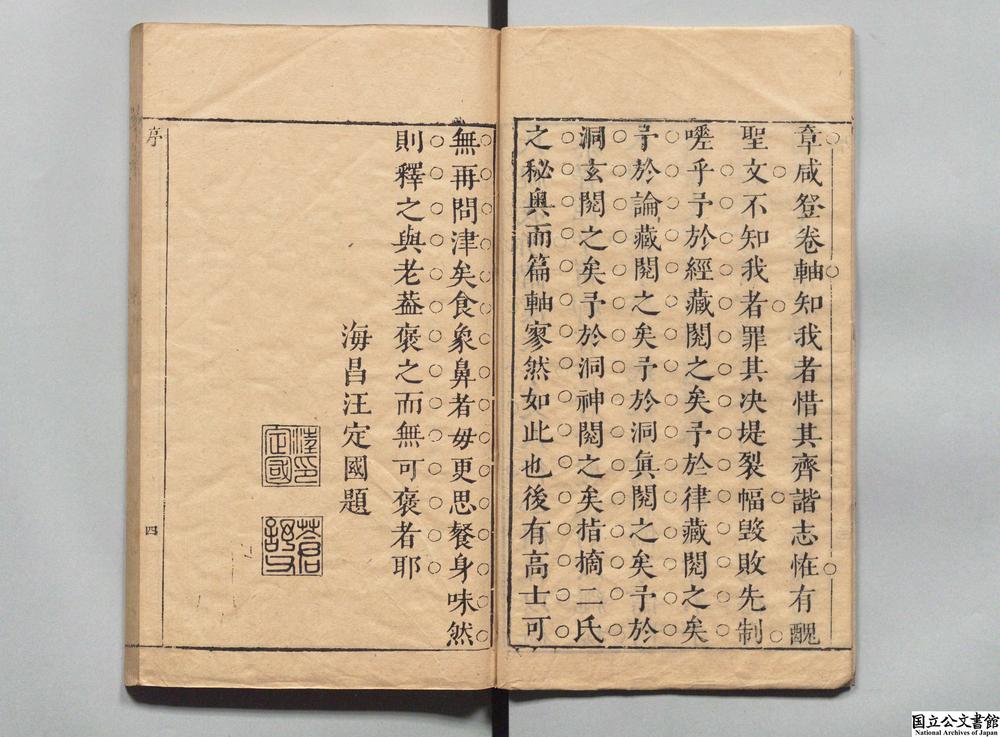 章咸登卷軸知我者惜其齊諧志恠有醜
聖文不知我者罪其決堤裂幅毀敗先制
嗟乎予於經藏閱之矣予於律藏閱之矣
予於論藏閱之矣予於洞眞閱之矣予於
洞玄閱之矣予於洞神閱之矣指摘二氏
之秘奧而篇軸寥然如此也後有高士可
無再問津矣食象鼻者毋更思餐身味然
則釋之與老葢褒之而無可褒者耶
海昌汪定國題
汪印定國
序
四
国立公文書館
National Archives of Japan